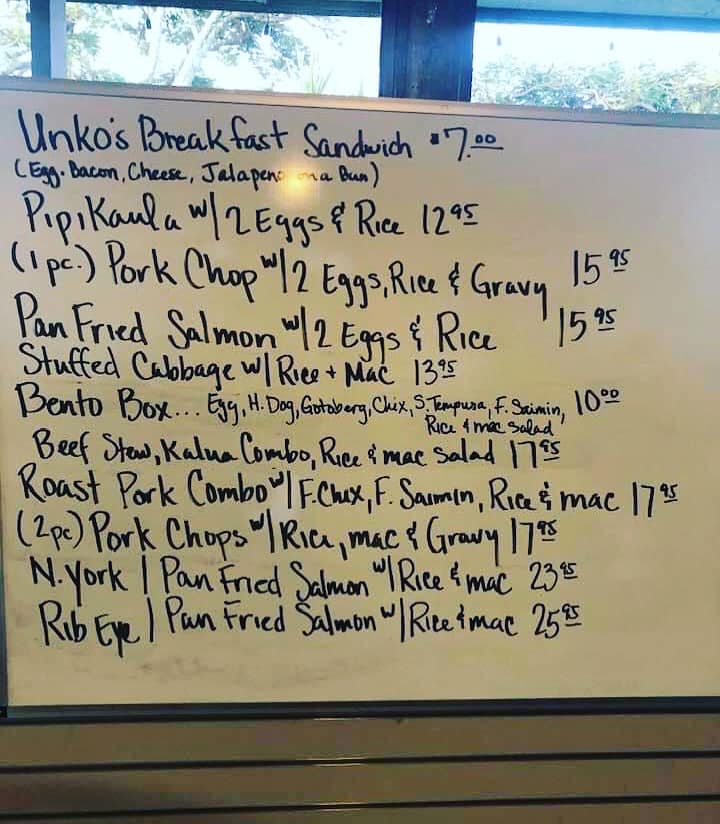 Unko's Breakfast Sandwich $7.00
(Egg, Bacon, Cheese, Jalapeno on a Bun)
PipiKaula w/ 2 Eggs & Rice 12 95
(1 pc.) Pork Chop w/ 2 Eggs, Rice & Gravy 15 95
Pan Fried Salmon w/ 2 Eggs & Rice 15 95
Stuffed Cabbage w/ Rice + Mac 13 95
Bento Box... Egg, H. Dog, Gotoberg, Chix, S. Tempura, F. Saimin, 10 00
Rice & mac Salad
Beef Stew, Kalua Combo, Rice & mac salad 17 95
Roast Pork Combo w/ F. Chix, F. Saimin, Rice & mac 17 95
(2pc) Pork Chops w/ Rice, mac & Gravy 17 95
N. York / Pan Fried Salmon w/ Rice & mac 23 95
Rib Eye / Pan Fried Salmon w/ Rice & mac 25 95